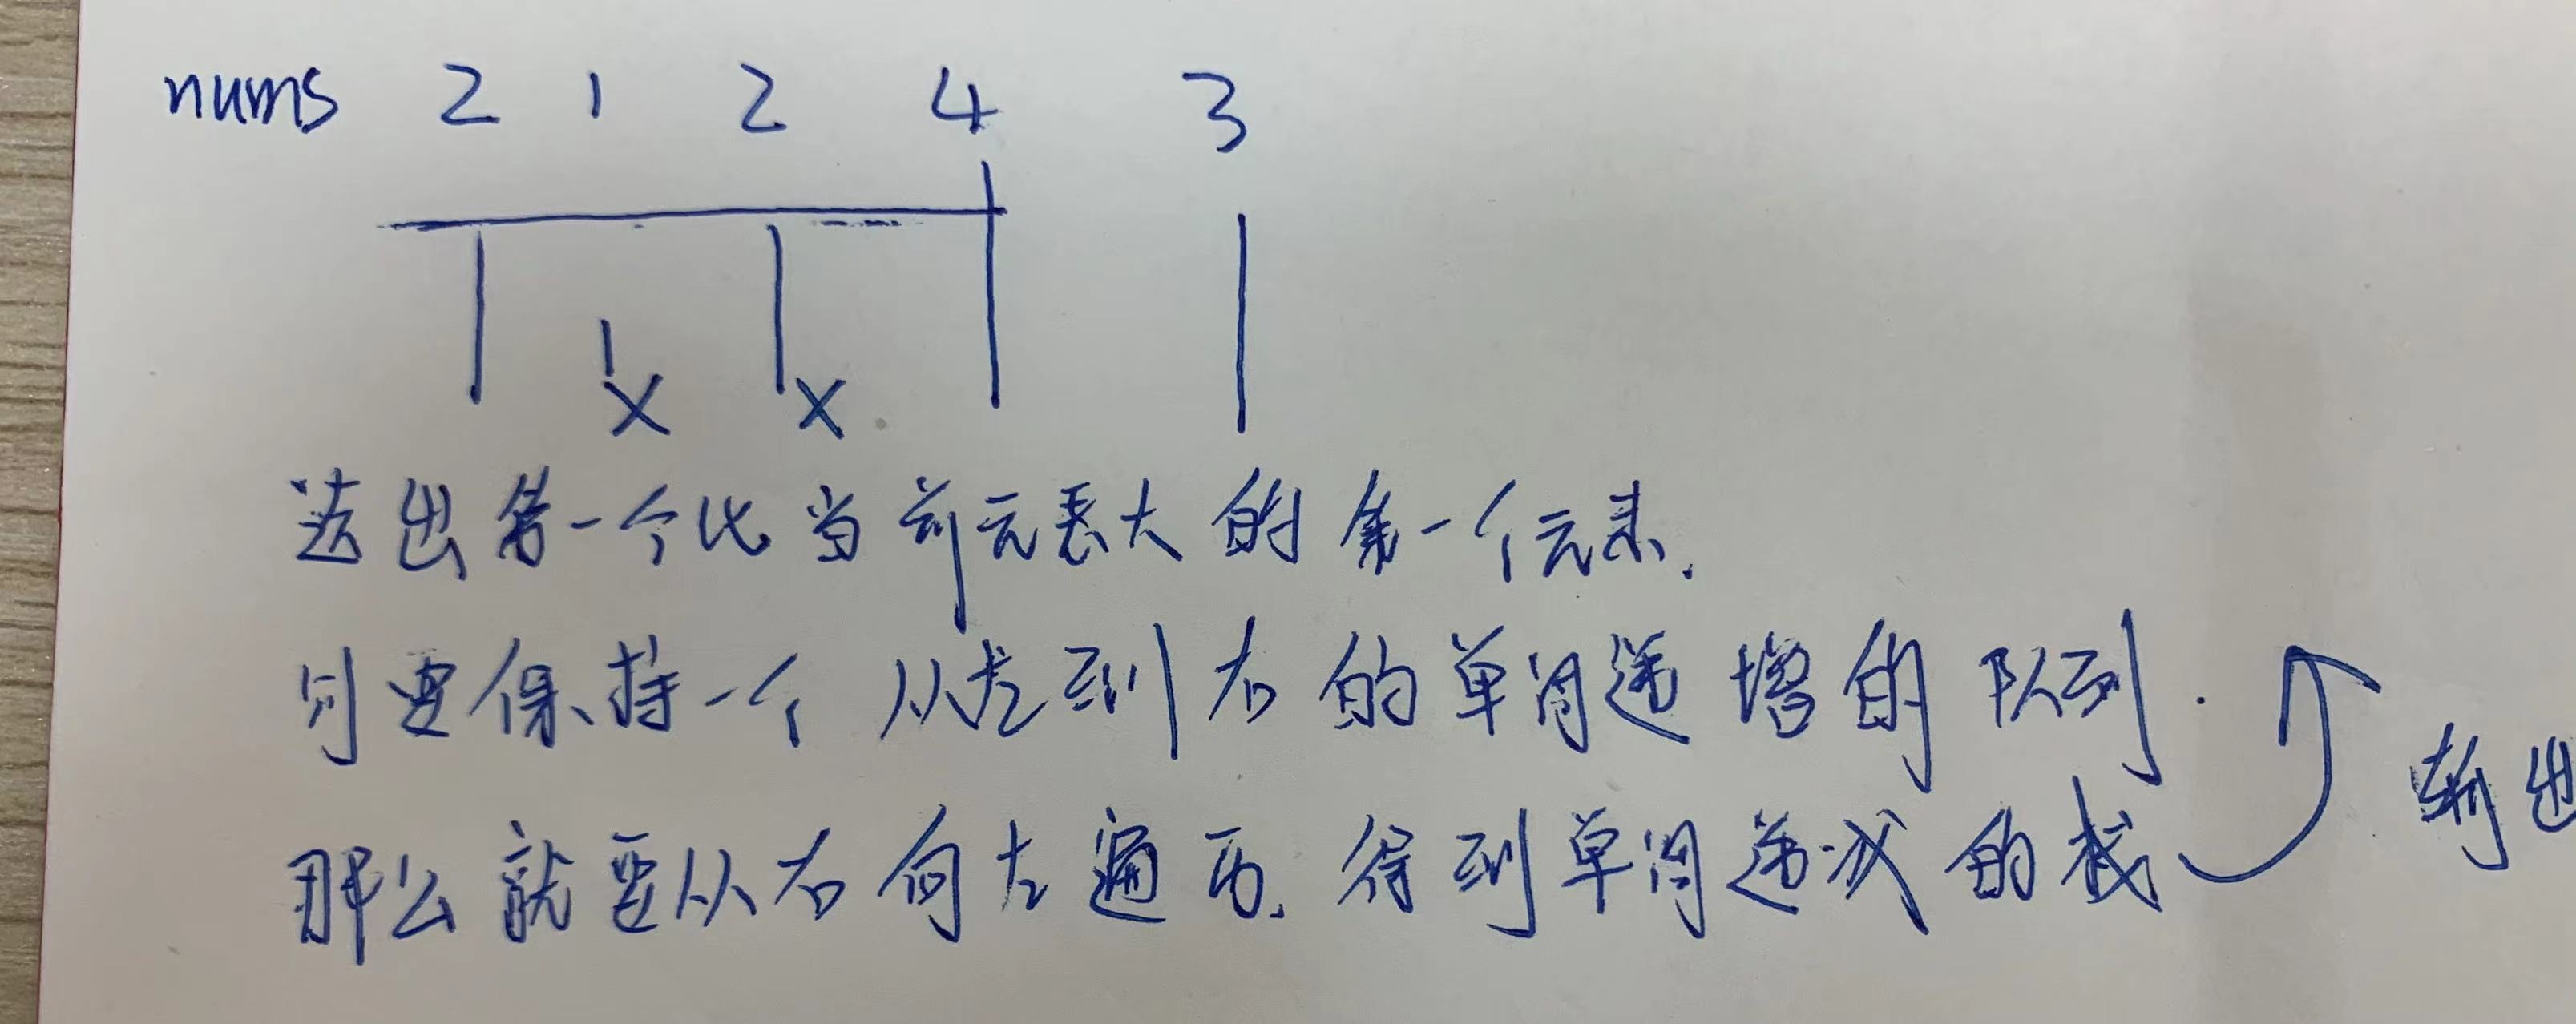 nums 2 1 2 4 3
选出第一个比当前元素大的第一个元素.
则要保持一个从左到右的单调递增的队列.
那么就要从右向左遍历.得到单调递减的栈
出